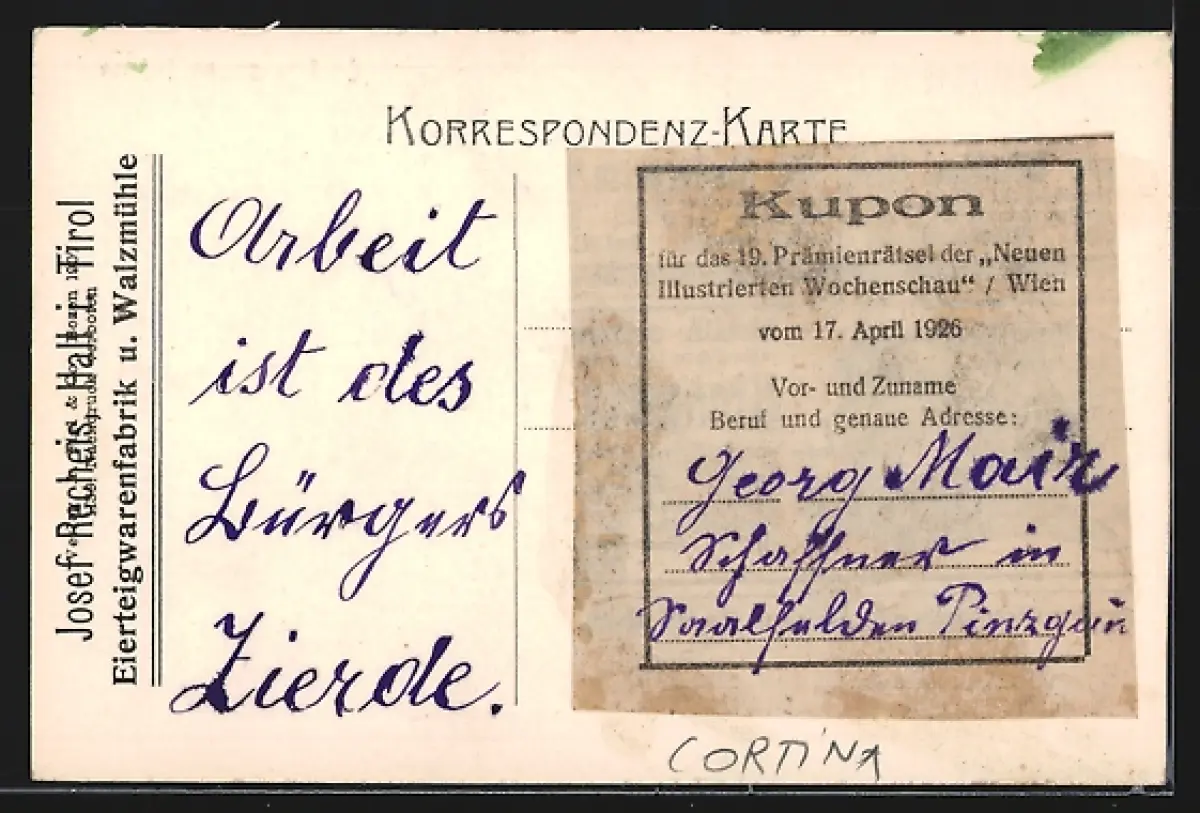 KORRESPONDENZ-KARTE
Josef Recheis Hall in Tirol
Eierteigwarenfabrik u. Walzmühle
Arbeit
ist des
Bürgers
Zierde.
Kupon
für das 19. Prämienrätsel der „Neuen
Illustrierten Wochenschau“ / Wien
vom 17. April 1926
Vor- und Zuname
Beruf und genaue Adresse:
Georg Mair
Schaffner in
Saalfelden Pinzgau
CORTINA